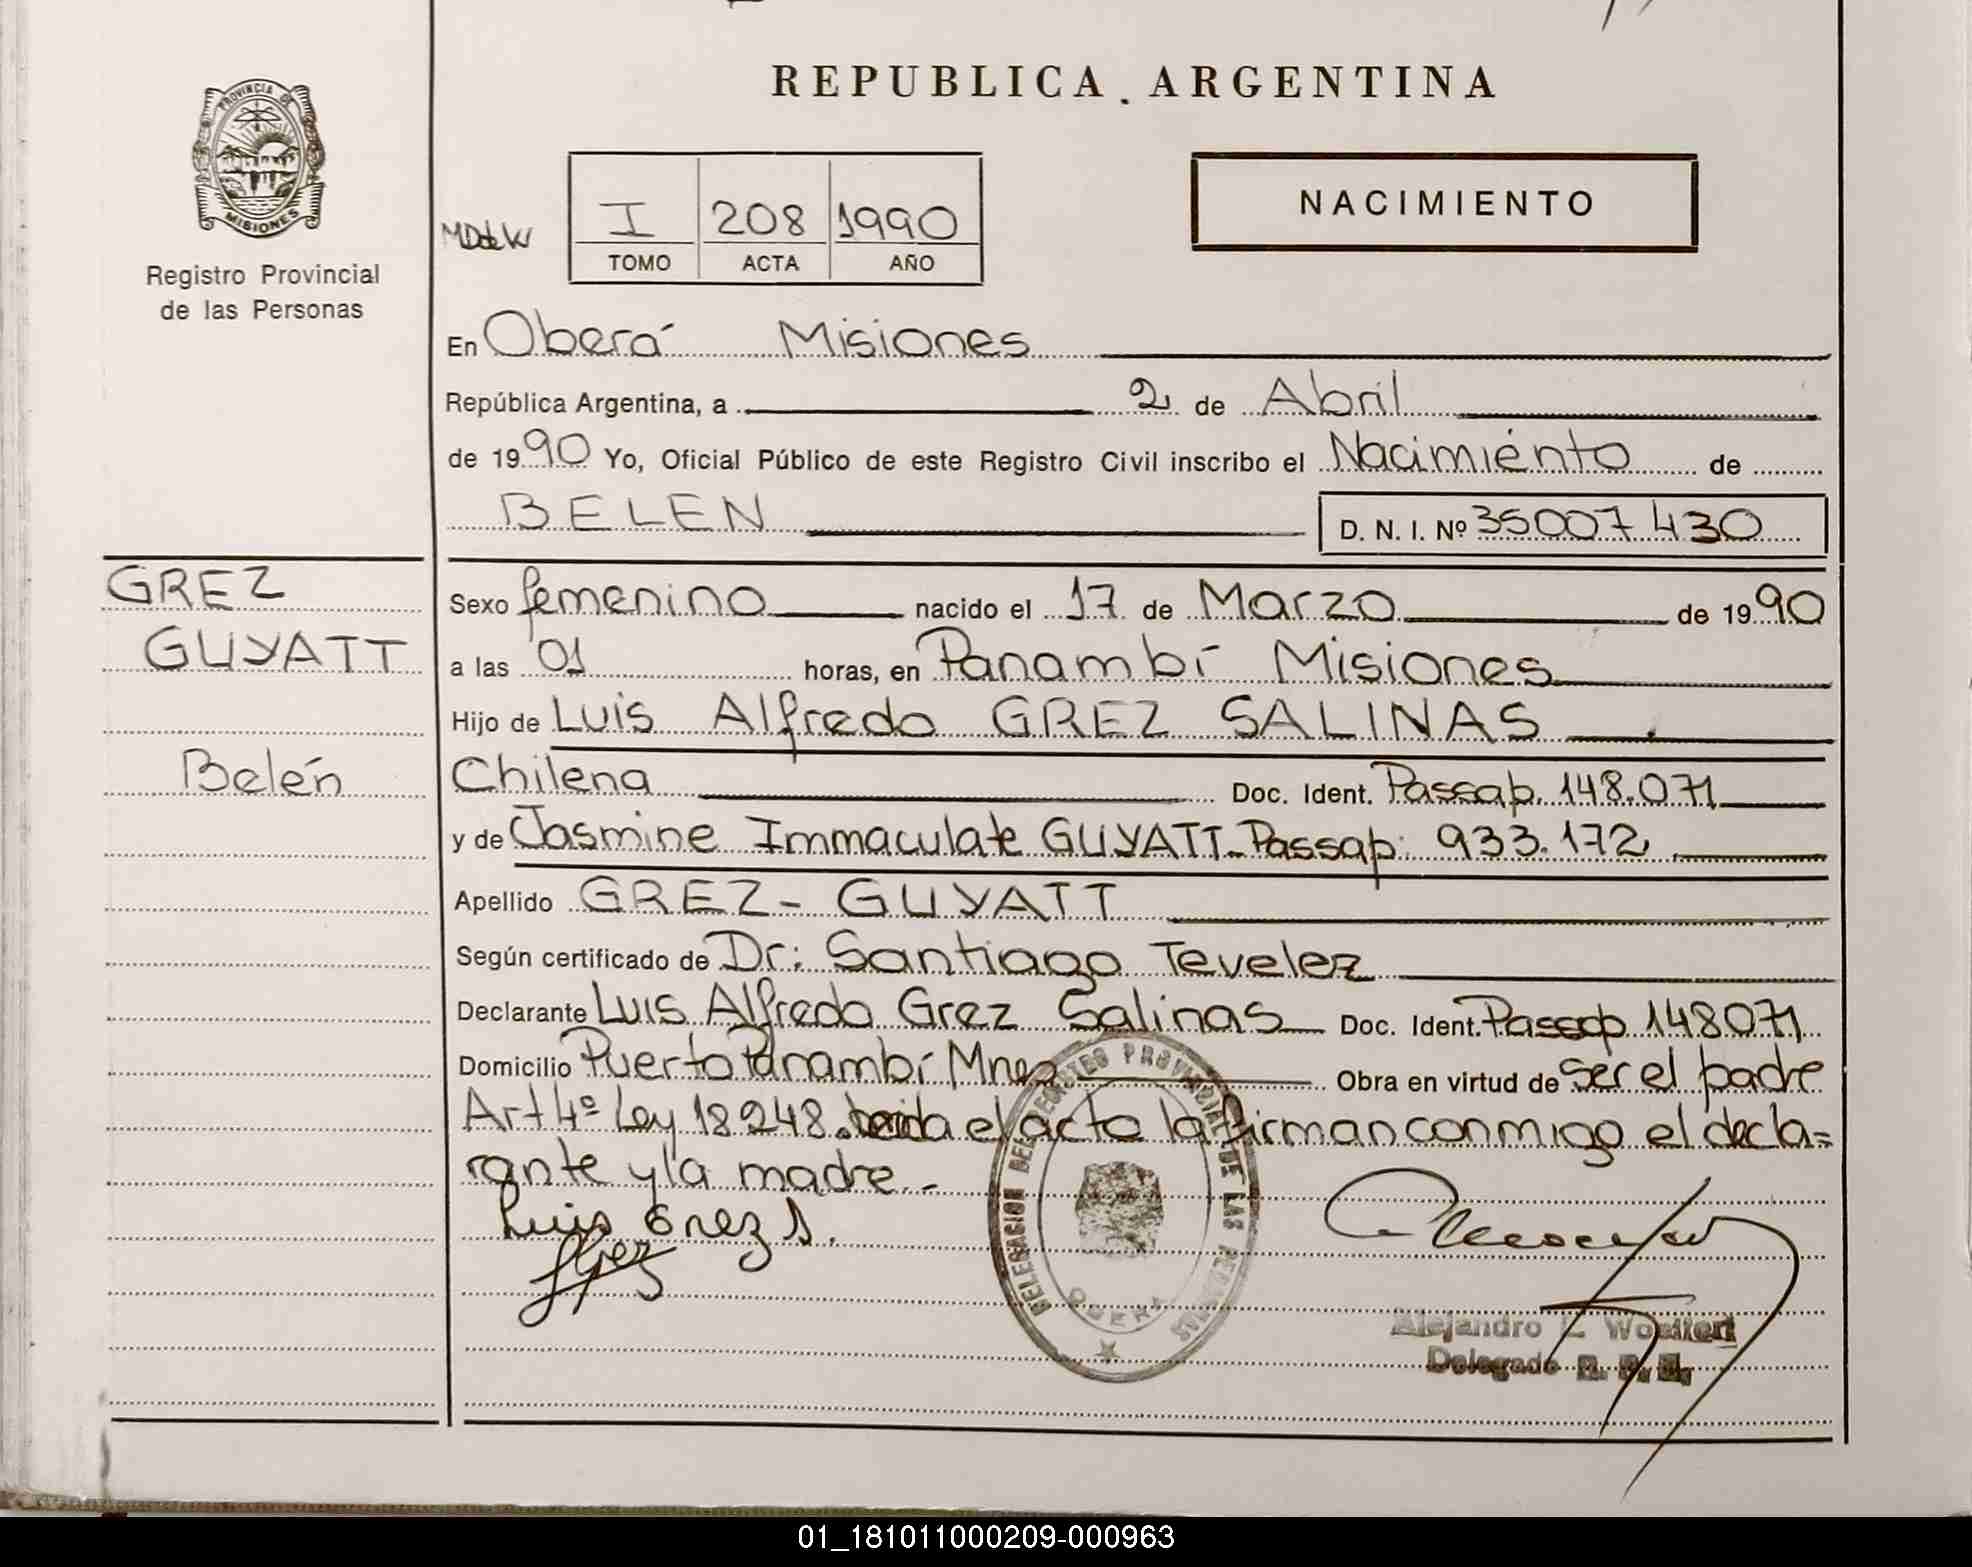 REPUBLICA. ARGENTINA
PROVINCIA DE
MISIONES
Registro Provincial
de las Personas
NACIMIENTO
MDdeW
I 208 1990
TOMO ACTA AÑO
En Oberá Misiones
República Argentina, a 2 de Abril
de 1990 Yo, Oficial Público de este Registro Civil inscribo el Nacimiento de
BELEN D. N. I. Nº 35007430
GREZ
GUYATT
Belén
Sexo femenino nacido el 17 de Marzo de 1990
a las 01 horas, en Panambí Misiones
Hijo de Luis Alfredo GREZ SALINAS
Chilena Doc. Ident. Passap. 148.071
y de Jasmine Immaculate GUYATT-Passap: 933.172
Apellido GREZ - GUYATT
Según certificado de Dr: Santiago Tevelez
Declarante Luis Alfredo Grez Salinas Doc. Ident. Passap 148071
Domicilio Puerto Panambí Mnes Obra en virtud de ser el padre
Art 4º Ley 18248. el acto la firman conmigo el decla=
rante y la madre.-
Luis Grez S.
JGrez
DELEGACION DEL REGISTRO PROVINCIAL DE LAS PERSONAS
OBERA
Alejandro
Delegado R. P.
01_181011000209-000963